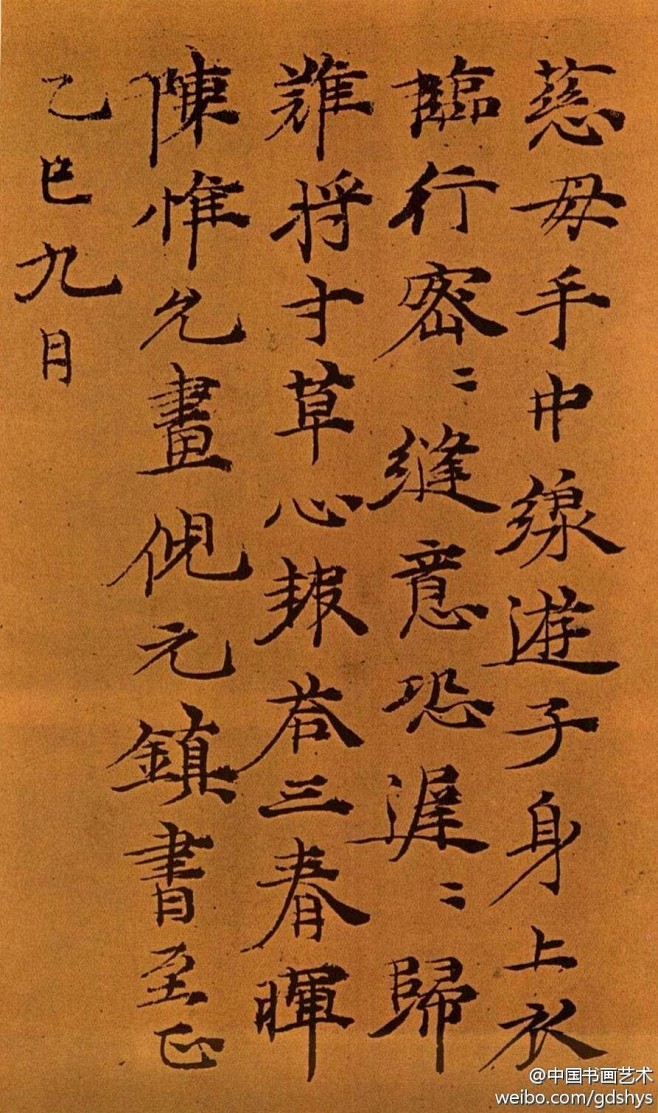 慈母手中線遊子身上衣
臨行密〻縫意恐遲〻歸
難將寸草心報荅三春暉
陳惟允畫倪元鎮書至正
乙巳九月
@中国书画艺术
weibo.com/gdshys